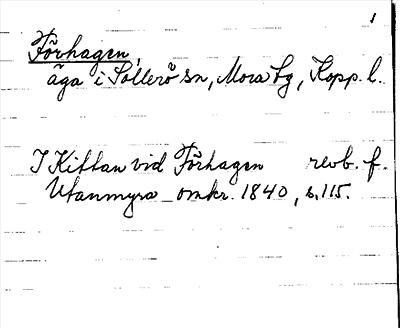 1
Förhagen,
äga i Sollerö sn, Mora tg, Kopp. l.
I Kittan vid Förhagen revb. f.
Utanmyra omkr. 1840, s. 115.